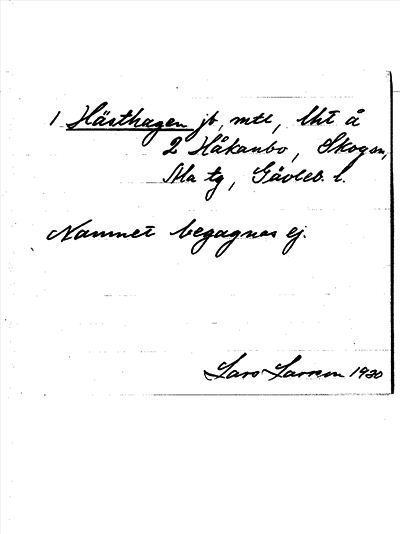 1 Hästhagen jb, mtl, lht å
2 Håkanbo, Skogsn,
Ala tg, Gävleb. l.
Namnet begagnas ej.
Lars Larsson 1930